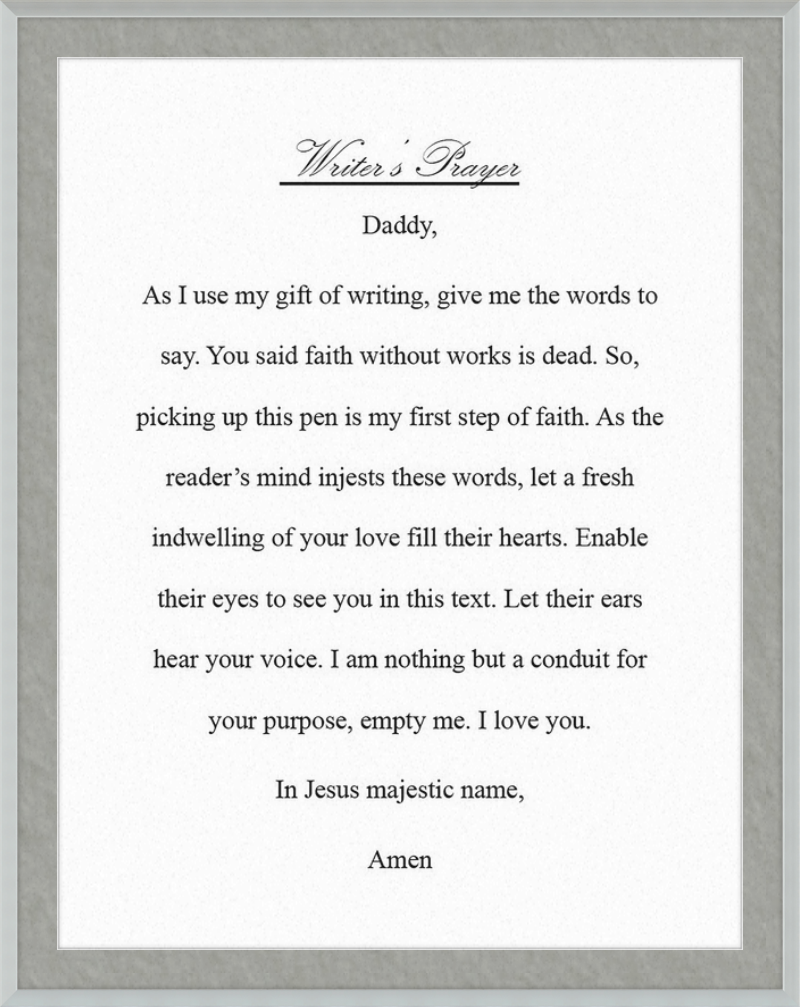 Writer's Prayer
Daddy,
As I use my gift of writing, give me the words to
say. You said faith without works is dead. So,
picking up this pen is my first step of faith. As the
reader’s mind injests these words, let a fresh
indwelling of your love fill their hearts. Enable
their eyes to see you in this text. Let their ears
hear your voice. I am nothing but a conduit for
your purpose, empty me. I love you.
In Jesus majestic name,
Amen